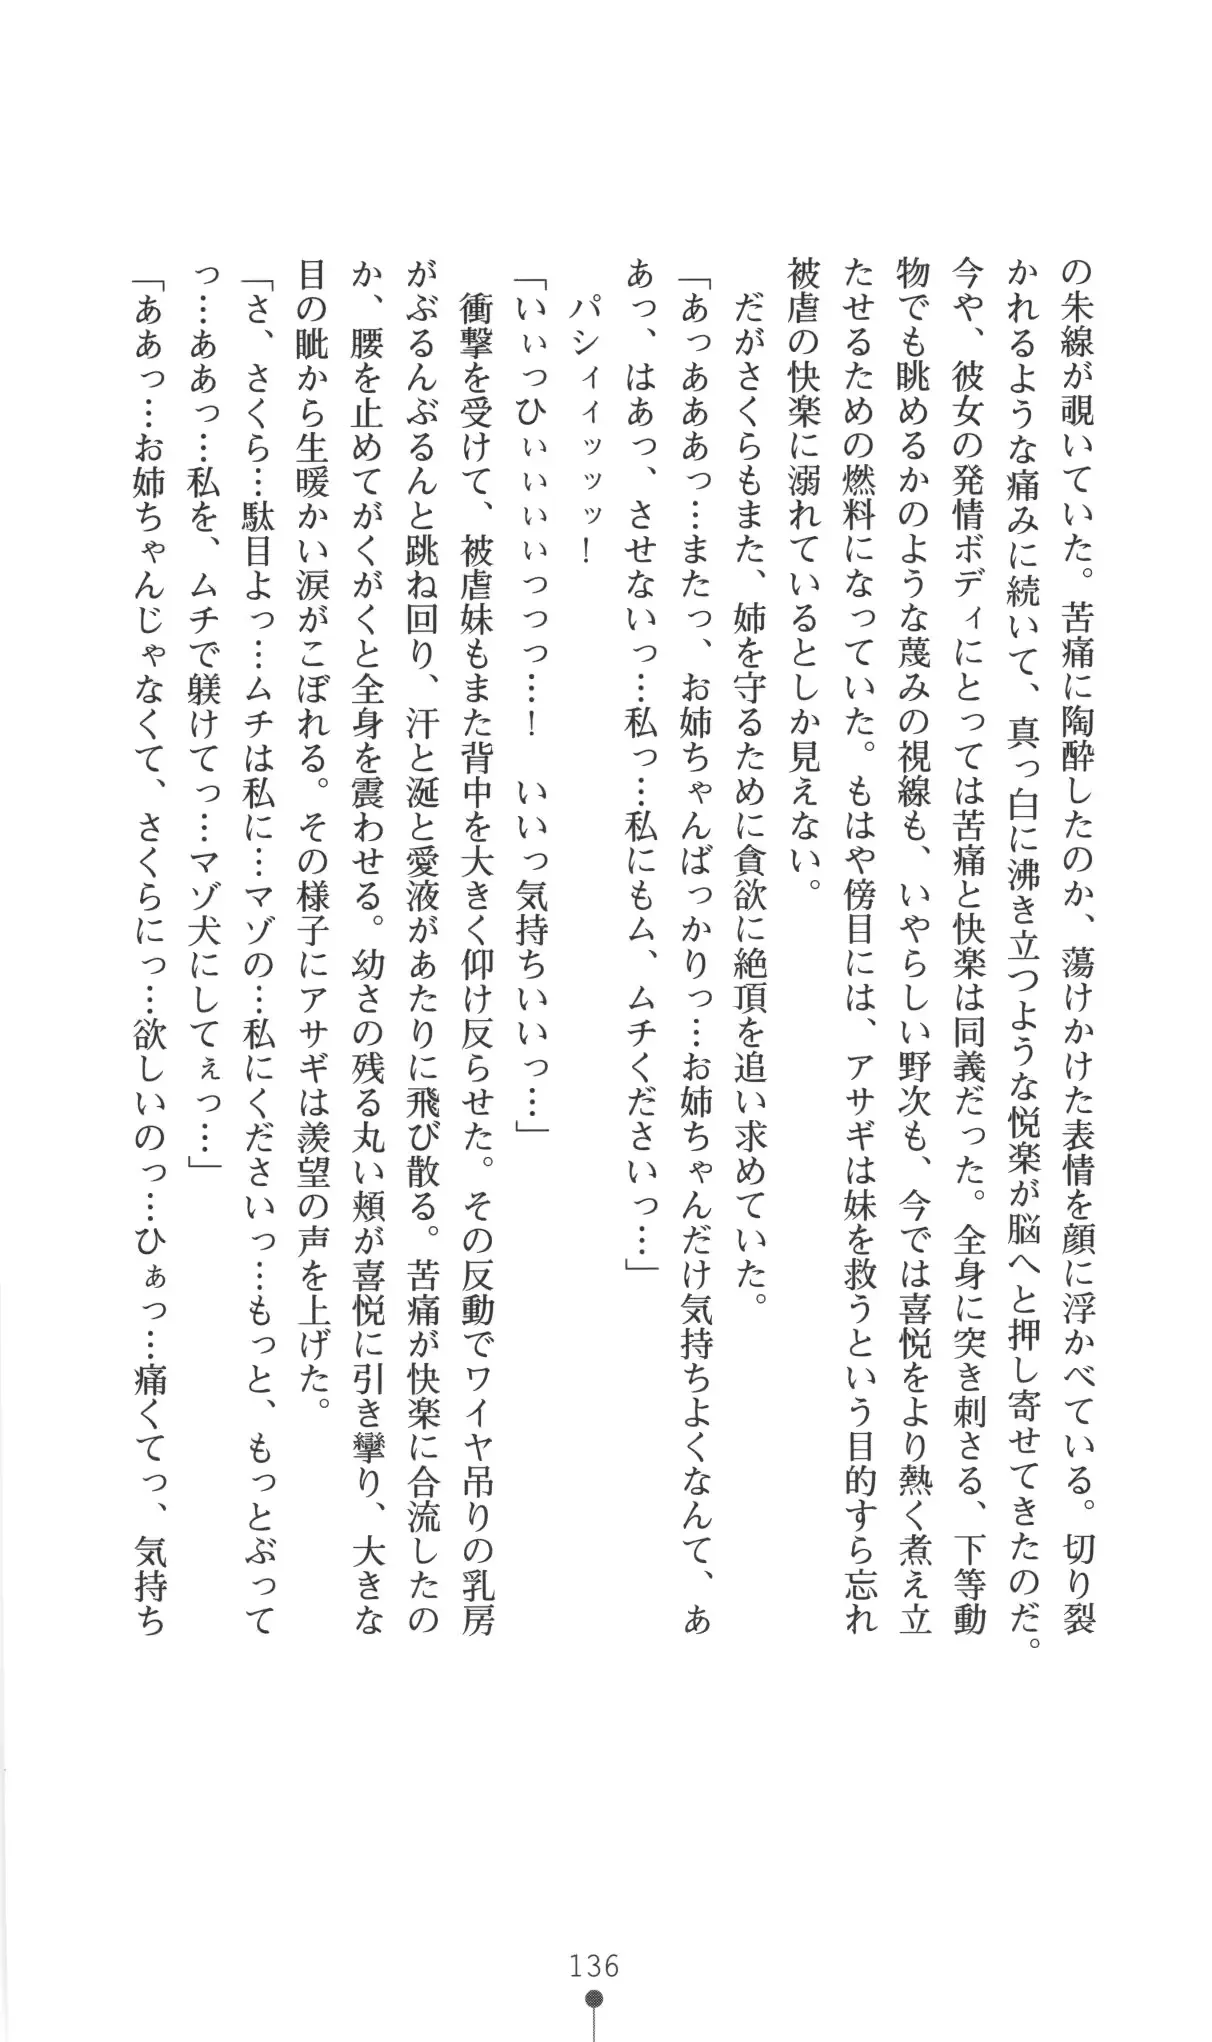 の朱線が覗いていた。苦痛に陶酔したのか、蕩けかけた表情を顔に浮かべている。切り裂
かれるような痛みに続いて、真っ白に沸き立つような悦楽が脳へと押し寄せてきたのだ。
今や、彼女の発情ボディにとっては苦痛と快楽は同義だった。全身に突き刺さる、下等動
物でも眺めるかのような蔑みの視線も、いやらしい野次も、今では喜悦をより熱く煮え立
たせるための燃料になっていた。もはや傍目には、アサギは妹を救うという目的すら忘れ
被虐の快楽に溺れているとしか見えない。
　だがさくらもまた、姉を守るために貪欲に絶頂を追い求めていた。
「あっあああっ…またっ、お姉ちゃんばっかりっ…お姉ちゃんだけ気持ちよくなんて、あ
あっ、はあっ、させないっ…私っ…私にもム、ムチくださいっ…」
　パシィィッッッ！
「いいぃっひぃぃぃぃっっっ…！　いいっ気持ちいいっ…」
　衝撃を受けて、被虐妹もまた背中を大きく仰け反らせた。その反動でワイヤ吊りの乳房
がぶるんぶるんと跳ね回り、汗と涎と愛液があたりに飛び散る。苦痛が快楽に合流したの
か、腰を止めてがくがくと全身を震わせる。幼さの残る丸い頬が喜悦に引き攣り、大きな
目の眦から生暖かい涙がこぼれる。その様子にアサギは羨望の声を上げた。
「さ、さくら…駄目よっ…ムチは私に…マゾの…私にくださいっ…もっと、もっとぶって
っ…ああっ…私を、ムチで躾けてっ…マゾ犬にしてぇっ…」
「ああっ…お姉ちゃんじゃなくて、さくらにっ…欲しいのっ…ひぁっ…痛くてっ、気持ち
136